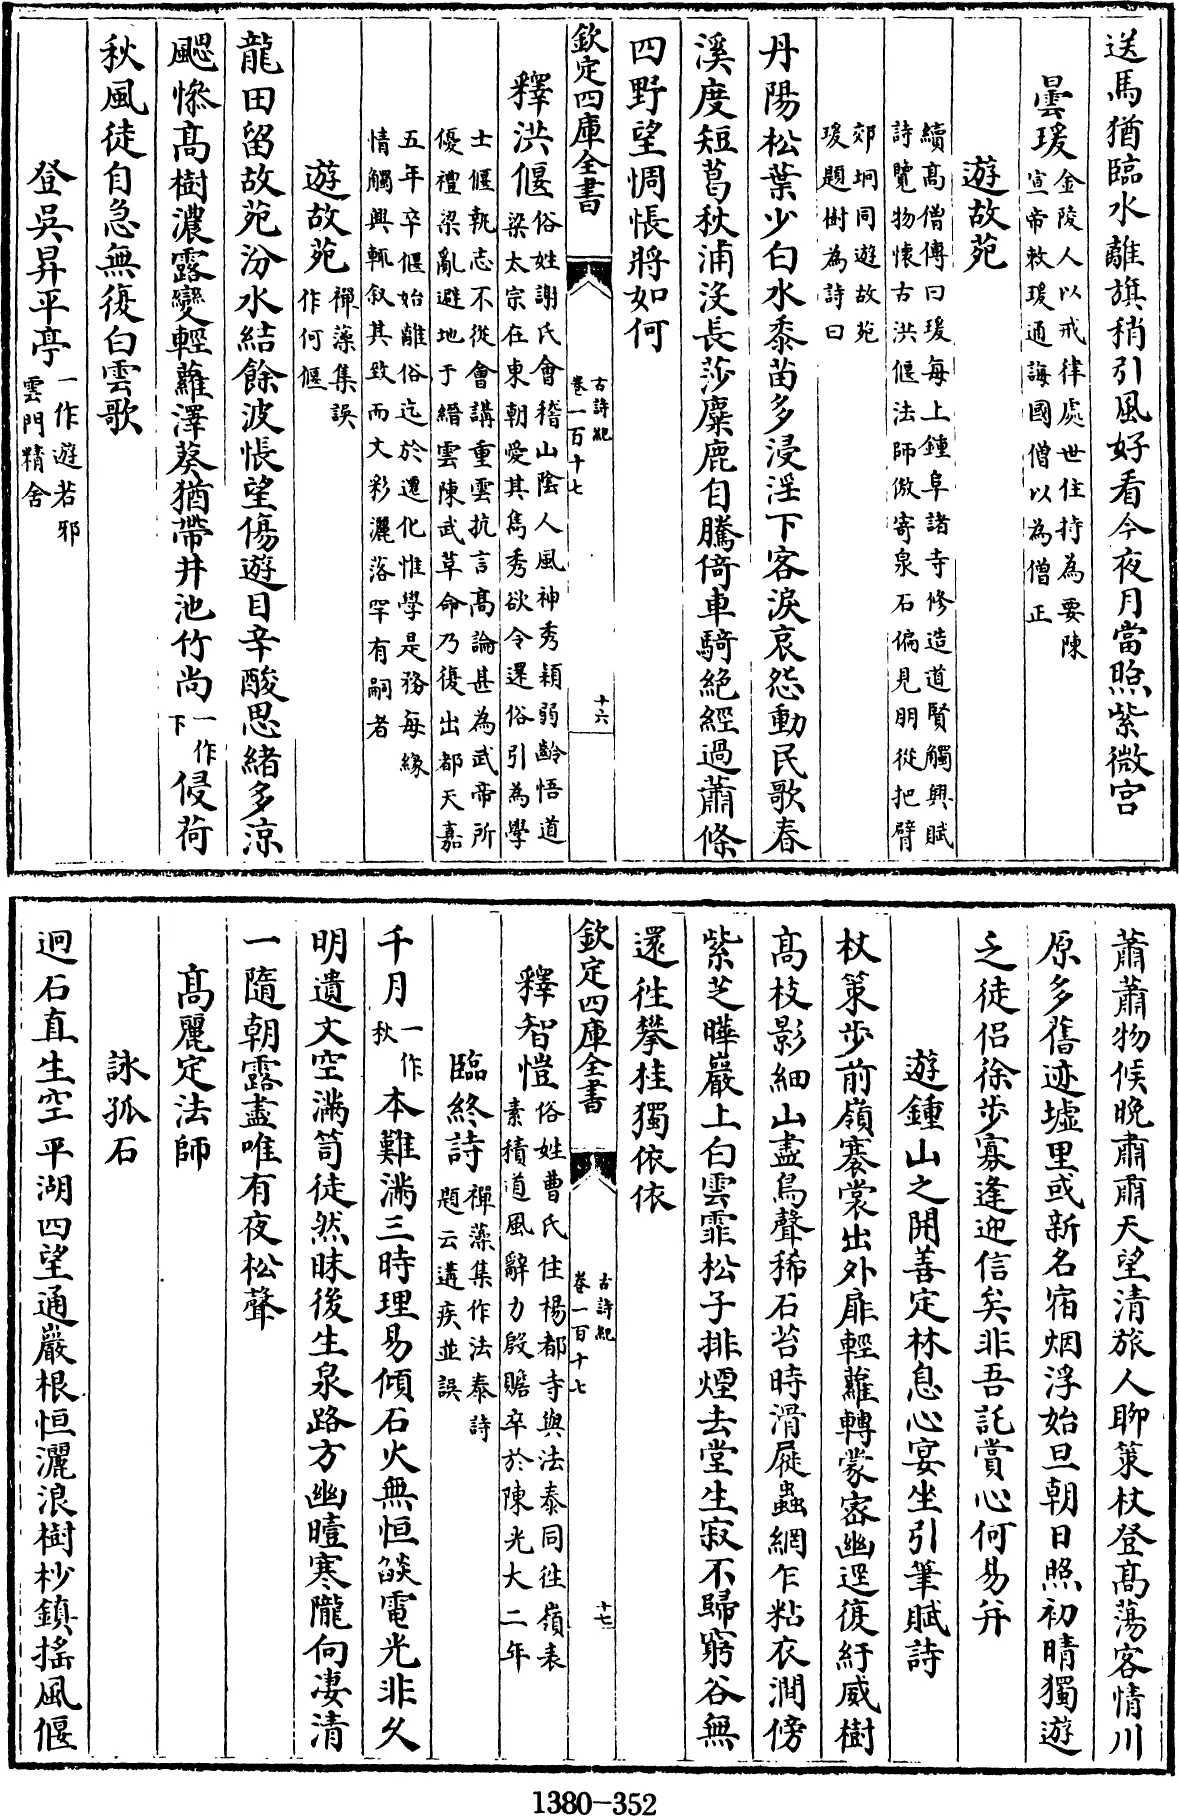 送馬猶臨水離旗稍引風好看今夜月當照紫微宫
曇瑗金陵人以戒律處世住持為要陳
宣帝敕瑗通誨國僧以為僧正
遊故苑
續髙僧傳曰瑗每上鍾阜諸寺修造道賢觸興賦
詩覽物懐古洪偃法師傲寄泉石偏見朋從把臂
郊坰同遊故苑
瑗題樹為詩曰
丹陽松葉少白水黍苗多浸淫下客淚哀怨動民歌春
溪度短葛秋浦沒長莎麋鹿自騰倚車騎絶經過蕭條
四野望惆悵將如何
欽定四庫全書
古詩紀
卷一百十七
十六
釋洪偃俗姓謝氏會稽山陰人風神秀穎弱齡悟道
梁太宗在東朝愛其雋秀欲令還俗引為學
士偃執志不從會講重雲抗言髙論甚為武帝所
優禮梁亂避地于縉雲陳武革命乃復出都天嘉
五年卒偃始離俗迄於遷化惟學是務每緣
情觸興輒叙其致而文彩灑落罕有嗣者
遊故苑禪藻集誤
作何偃
龍田留故苑汾水結餘波悵望傷遊目辛酸思緒多涼
颸慘髙樹濃露變輕蘿澤葵猶帶井池竹尚一作下侵荷
秋風徒自急無復白雲歌
登吳昇平亭一作遊若邪
雲門精舍
蕭蕭物候晚肅肅天望清旅人聊策杖登髙蕩客情川
原多舊迹墟里或新名宿烟浮始旦朝日照初晴獨遊
乏徒侣徐步寡逢迎信矣非吾託賞心何易并
遊鍾山之開善定林息心宴坐引筆賦詩
杖策步前嶺褰裳出外扉輕蘿轉蒙密幽逕復紆威樹
髙枝影細山盡鳥聲稀石苔時滑屣蟲網乍粘衣澗傍
紫芝曄巖上白雲霏松子排煙去堂生寂不歸窮谷無
還往攀桂獨依依
欽定四庫全書
古詩紀
卷一百十七
十七
釋智愷俗姓曹氏住楊都寺與法泰同往嶺表
素積道風辭力殷贍卒於陳光大二年
臨終詩禪藻集作法泰詩
題云遘疾並誤
千月一作秋本難滿三時理易傾石火無恒燄電光非久
明遺文空滿笥徒然昧後生泉路方幽噎寒隴向凄清
一隨朝露盡唯有夜松聲
髙麗定法師
詠孤石
迥石直生空平湖四望通巖根恒灑浪樹杪鎮摇風偃
1380-352